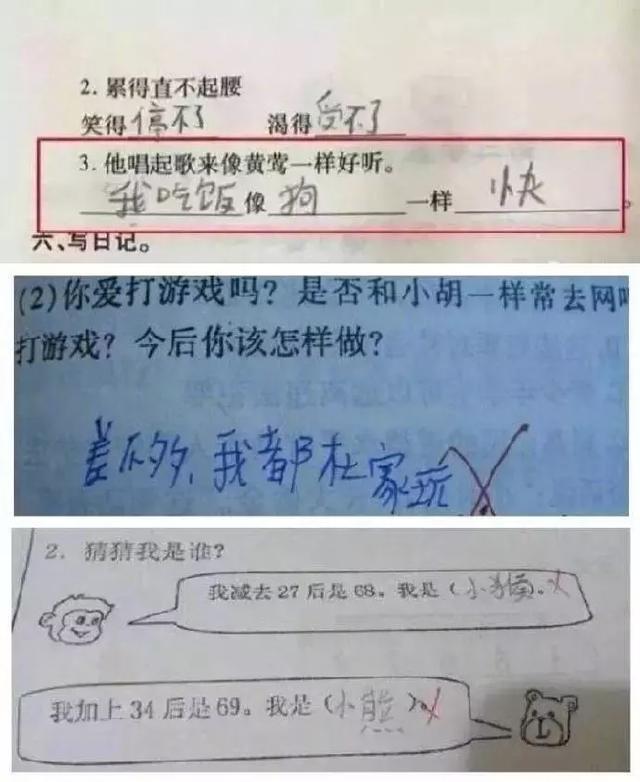 2. 累得直不起腰
笑得停不了 渴得受不了
3. 他唱起歌来像黄莺一样好听。
我吃饭像狗一样快。
六、写日记。
(2)你爱打游戏吗?是否和小胡一样常去网吧
打游戏?今后你该怎样做?
差不多,我都在家玩
2. 猜猜我是谁?
我减去27后是68。我是(小猴)。
我加上34后是69。我是(小熊)。